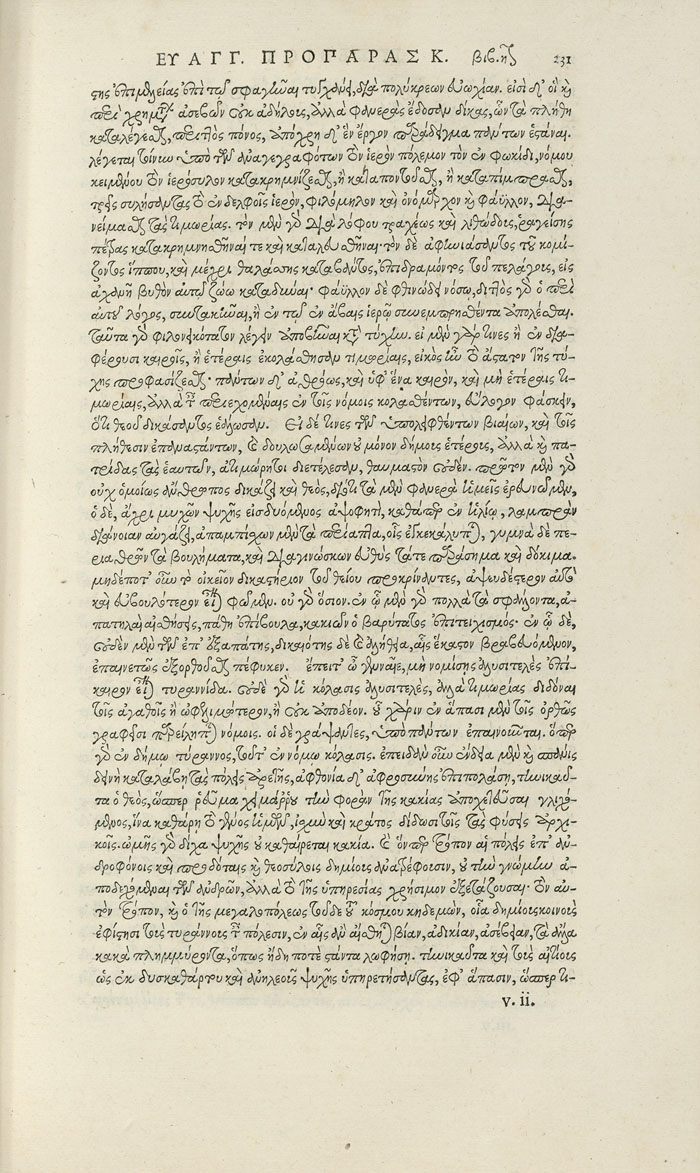 ΕΥΑΓΓ. ΠΡΟΠΑΡΑΣΚ. βιβ. η 231
της ἐπιμελείας ἐπὶ τῷ σφαγῆναι τυγχάνει, διὰ πολύκρεων εὐωχίαν. εἰσὶ δ' οἳ καὶ
περὶ χρημ ἀσεβῶν οὐκ ἀδήλοις, ἀλλὰ φανερὰς ἔδοσαν δίκας, ὧν τὰ πλήθη
καταλέγεσθαι, περιττὸς πόνος, ἀπόχρη δ' ἓν ἔργον παράδειγμα πάντων ἑστάναι.
λέγεται τοίνυν ὑπὸ τῶν ἀναγεγραφότων τὸν ἱερὸν πόλεμον τὸν ἐν φωκίδι, νόμου
κειμένου τὸν ἱερόσυλον κατακρημνίζεσθαι, ἢ καταποντοῦσθαι, ἢ καταπίμπρασθαι,
τρεῖς συλήσαντας τὸ ἐν δελφοῖς ἱερὸν, φιλόμηλον καὶ ὀνόμαρχον καὶ φάϋλλον, δια-
νείμασθαι τὰς τιμωρίας. τὸν μὲν γὰρ διὰ λόφου τραχέως καὶ λιθώδους, ῥαγείσης
πέτρας κατακρημνηθῆναί τε καὶ καταλευσθῆναι· τὸν δὲ ἀφηνιάσαντος τοῦ κομί-
ζοντος ἵππου, καὶ μέχρι θαλάσσης καταβάντος, ἐπιδραμόντος τοῦ πελάγους, εἰς
ἀχανῆ βυθὸν αὐτῷ ζώῳ καταδῦναι· φάϋλλον δὲ φθινώδει νόσῳ, διττὸς γὰρ ὁ περὶ
αὐτοῦ λόγος, συντακῆναι, ἢ ἐν τῷ ἐν ἄβαις ἱερῷ συνεμπρησθέντα ἀπολέσθαι.
ταῦτα γὰρ φιλονεικότατον λέγειν ἀποβῆναι κατὰ τύχην. εἰ μὲν γάρ τινες ἢ ἐν δια-
φέρουσι καιροῖς, ἢ ἑτέραις ἐκολάσθησαν τιμωρίαις, εἰκὸς ἦν τὸ ἄστατον τῆς τύ-
χης προφασίζεσθαι· πάντων δ' ἀθρόως, καὶ ὑφ' ἕνα καιρὸν, καὶ μὴ ἑτέραις τι-
μωρίαις, ἀλλὰ ταῖς περιεχομέναις ἐν τοῖς νόμοις κολασθέντων, εὔλογον φάσκειν,
ὅτι θεοῦ δικάσαντος ἑάλωσαν. Εἰ δέ τινες τῶν ὑπολειφθέντων βιαίων, καὶ τοῖς
πλήθεσιν ἐπαναστάντων, καὶ δουλωσαμένων οὐ μόνον δήμοις ἑτέροις, ἀλλὰ καὶ πα-
τρίδας τὰς ἑαυτῶν, ἀτιμώρητοι διετέλεσαν, θαυμαστὸν οὐδέν. πρῶτον μὲν γὰρ
οὐχ ὁμοίως ἄνθρωπος δικάζει καὶ θεός, διότι τὰ μὲν φανερὰ ἡμεῖς ἐρευνῶμεν,
ὁ δὲ, ἄχρι μυχῶν ψυχῆς εἰσδυόμενος ἀψοφητὶ, καθάπερ ἐν ἡλίῳ, λαμπρὰν
διάνοιαν αὐγάζει, ἀπαμπίσχων μὲν τὰ περίαπτα, οἷς ἐγκεκάλυπται, γυμνὰ δὲ πε-
ριαθρῶν τὰ βουλήματα, καὶ διαγινώσκων εὐθὺς τά τε παράσημα καὶ δόκιμα.
μηδέποτ' οὖν τὸ οἰκεῖον δικαστήριον τοῦ θείου προκρίναντες, ἀψευδέστερον αὐτὸ
καὶ εὐβουλότερον εἶναι φῶμεν. οὐ γὰρ ὅσιον. ἐν ᾧ μὲν γὰρ πολλὰ τὰ σφάλλοντα, ἀ-
πατηλαὶ αἰσθήσεις, πάθη ἐπίβουλα, κακιῶν ὁ βαρύτατος ἐπιτειχισμός· ἐν ᾧ δὲ,
οὐδὲν μὲν τῶν ἐπ' ἐξαπάτης, δικαιότης δὲ καὶ ἀλήθεια, αἷς ἕκαστον βραβευόμενον,
ἐπαινετῶς ἐξορθοῦσθαι πέφυκεν. ἔπειτ' ὦ γενναῖε, μὴ νομίσῃς ἀλυσιτελὲς ἐπί-
καιρον εἶναι τυραννίδα. οὐδὲ γὰρ ἡ κόλασις ἀλυσιτελές, ἀλλὰ τιμωρίας διδόναι
τοῖς ἀγαθοῖς ἢ ὠφελιμώτερον, ἢ οὐκ ἀποδέον. οὗ χάριν ἐν ἅπασι μὲν τοῖς ὀρθῶς
γραφεῖσι παρείληπται νόμοις. οἱ δὲ γράψαντες, ὑπὸ πάντων ἐπαινοῦνται. ὅπερ
γὰρ ἐν δήμῳ τύραννος, τοῦτ' ἐν νόμῳ κόλασις. ἐπειδὰν οὖν ἔνδεια μὲν καὶ σπάνις
δεινὴ καταλάβῃ τὰς πόλεις ἀρετῆς, ἀφθονία δ' ἀφροσύνης ἐπιπολάσῃ, τηνικαῦ-
τα ὁ θεός, ὥσπερ ῥεῦμα χειμάρρου τὴν φορὰν τῆς κακίας ἀποχετεῦσαι γλιχό-
μενος, ἵνα καθάρῃ τὸ γένος ἡμῶν, ἰσχὺν καὶ κράτος δίδωσι τοῖς τὰς φύσεις ἀρχι-
κοῖς. ὠμῆς γὰρ δίχα ψυχῆς οὐ καθαίρεται κακία. καὶ ὅνπερ τρόπον αἱ πόλεις ἐπ' ἀν-
δροφόνοις καὶ προδόταις καὶ θεοσύλοις δημίοις ἀνατρέφουσιν, οὐ τὴν γνώμην ἀ-
ποδεχόμεναι τῶν ἀνδρῶν, ἀλλὰ τὸ τῆς ὑπηρεσίας χρήσιμον ἐξετάζουσαι· τὸν αὐ-
τὸν τρόπον, καὶ ὁ τῆς μεγαλοπόλεως τοῦδε τοῦ κόσμου κηδεμών, οἷα δημίοις κοινοῖς
ἐφίστησι τοῖς τυράννοις τὰς πόλεσιν, ἐν αἷς ἂν αἴσθηται βίαν, ἀδικίαν, ἀσέβειαν, τὰ ἄλλα
κακὰ πλημμύροντα, ὅπως ἤδη ποτὲ στάντα λωφήσῃ. τηνικαῦτα καὶ τοῖς αἰτίοις
ὡς ἐκ δυσκαθάρτου καὶ ἀνηλεοῦς ψυχῆς ὑπηρετήσαντας, ἐφ' ἅπασιν, ὥσπερ τι-
v. ii.